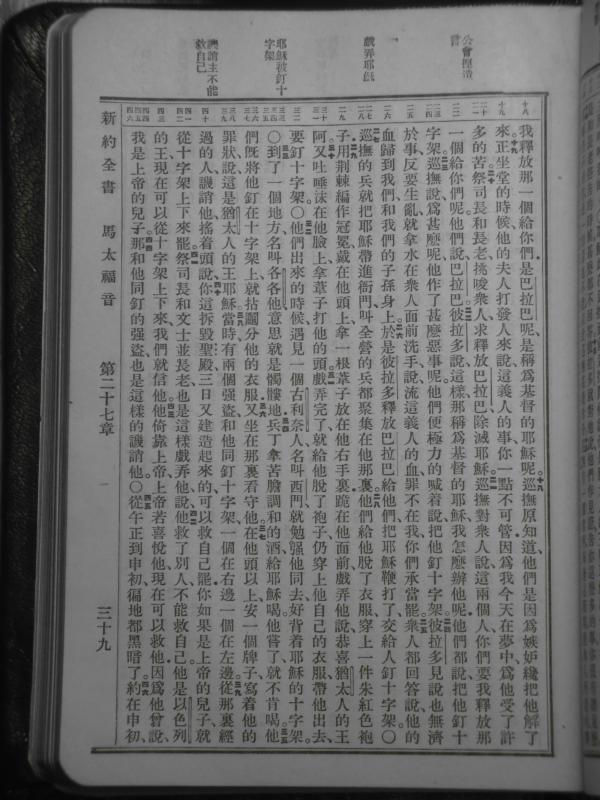 公會捏造
戲弄耶穌
耶穌被釘十
字架
譏誚主不能
救自己
我釋放那一個給你們是巴拉巴呢是稱爲基督的耶穌呢巡撫原知道他們是因爲嫉妒纔把他解了
來正坐堂的時候他的夫人打發人來說這義人的事你一點不可管因爲我今天在夢中爲他受了許
多的苦祭司長和長老挑唆衆人求釋放巴拉巴除滅耶穌巡撫對衆人說這兩個人你們要我釋放那
一個給你們呢他們說巴拉巴彼拉多說這樣那稱爲基督的耶穌我怎麼辦他呢他們都說把他釘十
字架巡撫說爲甚麼呢他作了甚麼惡事呢他們便極力的喊着說把他釘十字架彼拉多見說也無濟
於事反要生亂就拿水在衆人面前洗手說流這義人的血罪不在我你們承當罷衆人都回答說他的
血歸到我們和我們的子孫身上於是彼拉多釋放巴拉巴給他們把耶穌鞭打了交給人釘十字架〇
巡撫的兵就把耶穌帶進衙門叫全營的兵都聚集在他那裏他們給他脫了衣服穿上一件朱紅色袍
子用荆棘編作冠冕戴在他頭上拿一根葦子放在他右手裏跪在他面前戲弄他說恭喜猶太人的王
阿又吐唾沫在他臉上拿葦子打他的頭戲弄完了就給他脫了袍子仍穿上他自己的衣服帶他出去
要釘十字架〇他們出來的時候遇見一個古利奈人名叫西門就勉强他同去好背着耶穌的十字架
〇到了一個地方名叫各各他意思就是髑髏地兵丁拿苦膽調和的酒給耶穌喝他嘗了就不肯喝他
們旣將他釘在十字架上就拈鬮分他的衣服又坐在那裏看守他在他頭以上安一個牌子寫着他的
罪狀說這是猶太人的王耶穌當時有兩個强盜和他同釘十字架一個在右邊一個在左邊從那裏經
過的人譏誚他搖着頭說你這拆毀聖殿三日又建造起來的可以救自己罷你如果是上帝的兒子就
從十字架上下來罷祭司長和文士並長老也是這樣戲弄他說他救了別人不能救自己他是以色列
的王現在可以從十字架上下來我們就信他他倚靠上帝上帝若喜悅他現在可以救他因爲他曾說
我是上帝的兒子那和他同釘的强盜也是這樣的譏誚他〇從午正到申初徧地都黑暗了約在申初
新約全書 馬太福音 第二十七章 三十九